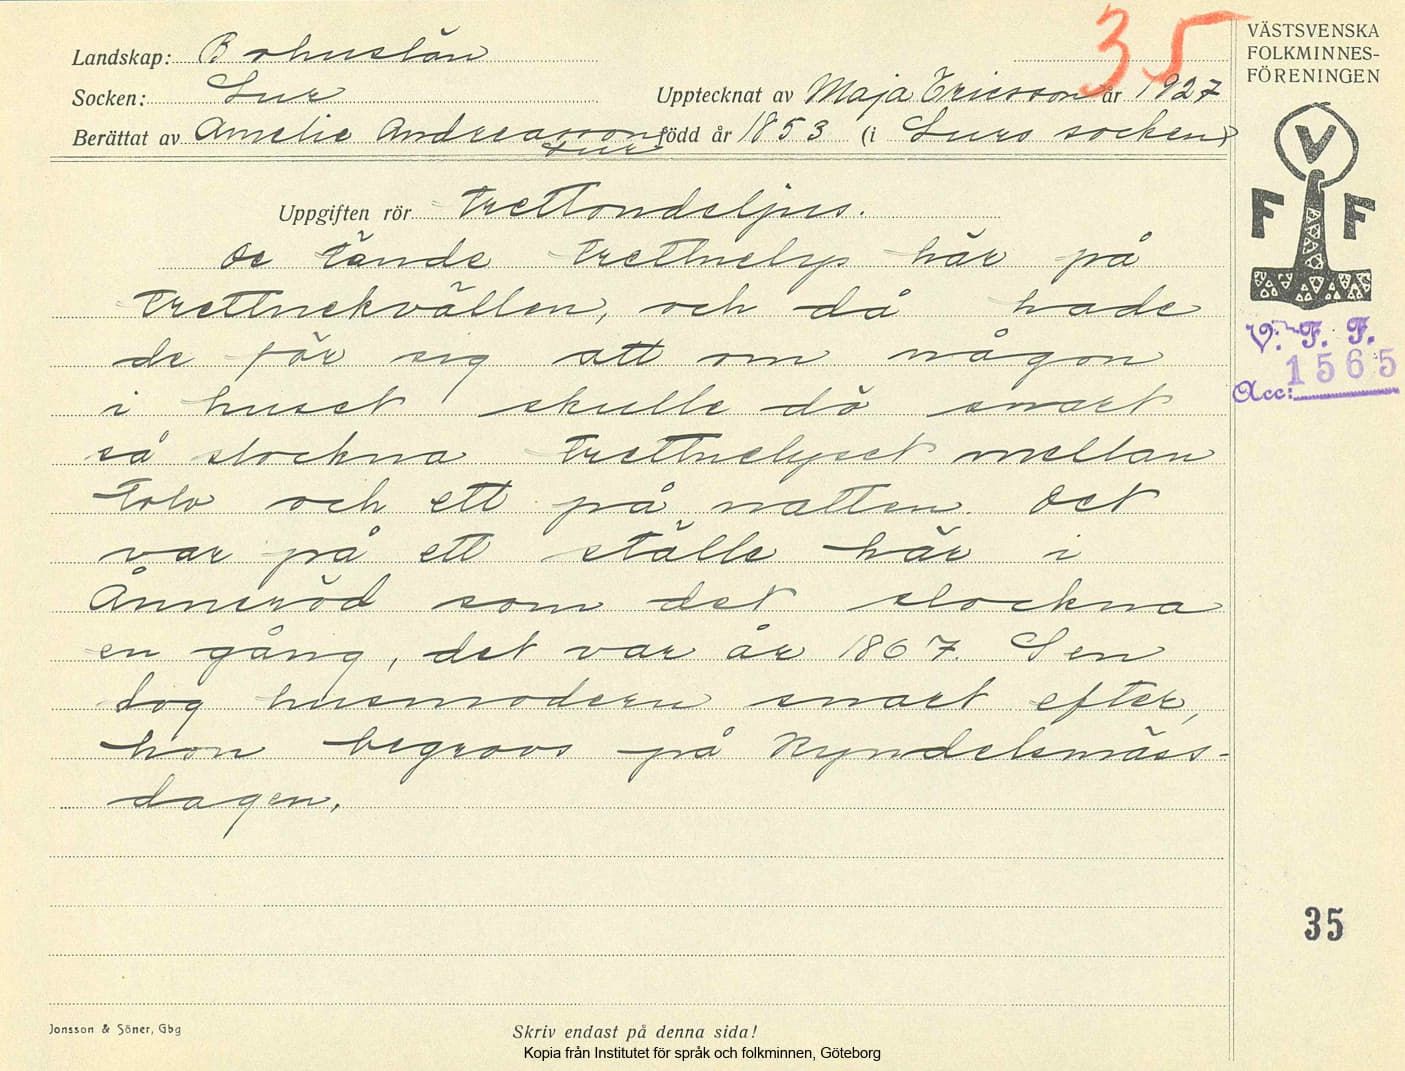 35
Landskap: Bohuslän
Socken: Lur
Upptecknat av Maja Ericsson år 1927
Berättat av Amelie Andreasson född år 1853 (i Lurs socken)
Lur
Uppgiften rör Trettondeljus.
De tände trettnelys här på
trettnekvällen, och då hade
de för sig att om någon
i huset skulle dö snart
så slockna trettnelyset mellan
tolv och ett på natten. Det
var på ett ställe här i
Ånneröd som det slockna
en gång, det var år 1867. Sen
dog husmodern snart efter,
hon begravs på Kyndelsmäss-
dagen.
VÄSTSVENSKA
FOLKMINNES-
FÖRENINGEN
V
F F
V. F. F.
Acc: 1565
35
Jonsson & Söner, Gbg
Skriv endast på denna sida!
Kopia från Institutet för språk och folkminnen, Göteborg